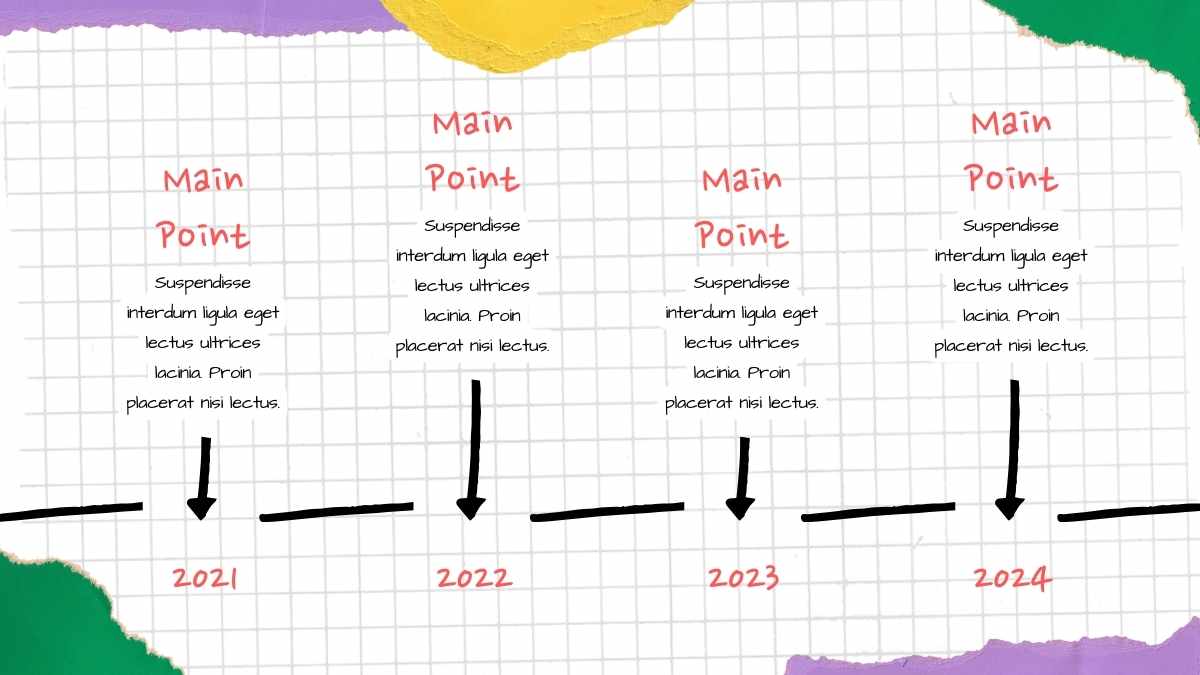 Main
Point
Suspendisse
interdum ligula eget
lectus ultrices
lacinia. Proin
placerat nisi lectus.
2021
Main
Point
Suspendisse
interdum ligula eget
lectus ultrices
lacinia. Proin
placerat nisi lectus.
2022
Main
Point
Suspendisse
interdum ligula eget
lectus ultrices
lacinia. Proin
placerat nisi lectus.
2023
Main
Point
Suspendisse
interdum ligula eget
lectus ultrices
lacinia. Proin
placerat nisi lectus.
2024